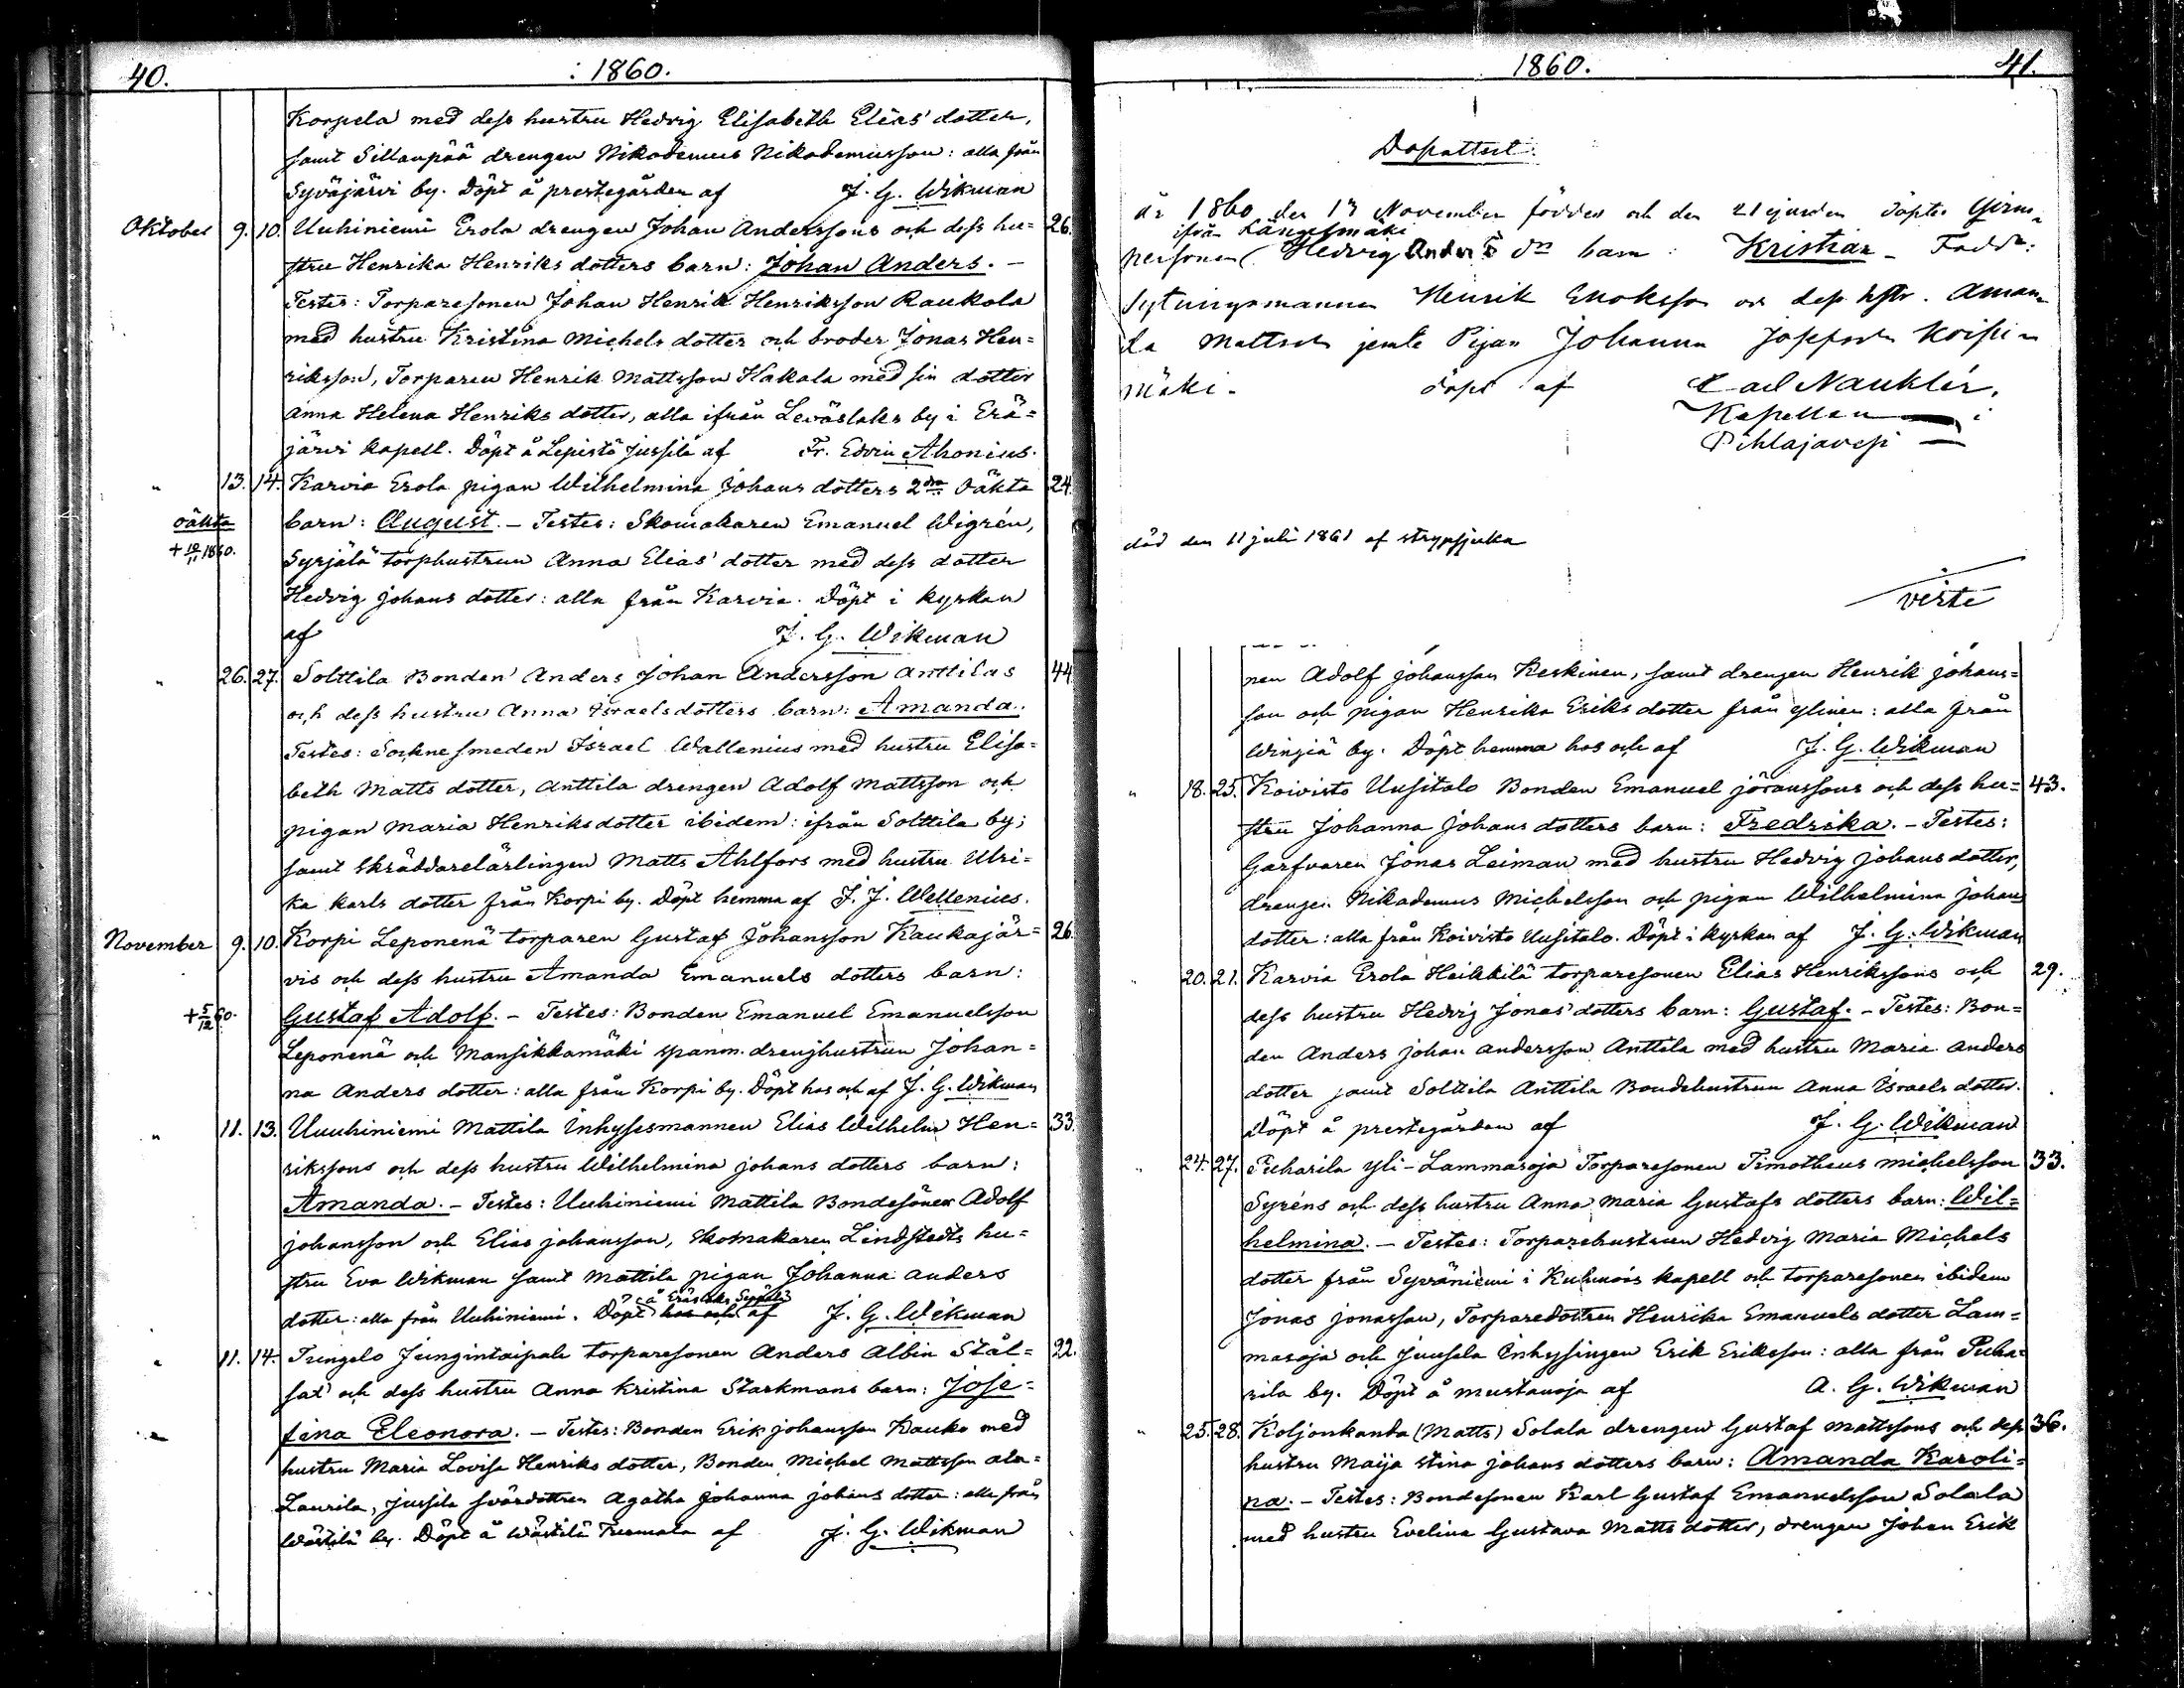 40. : 1860.
Korpela med dess hustru Hedvig Elisabeth Elias' dotter,
samt Sillanpää drengen Nikodemus Nikodemusson: alla från
Syväjärvi by. Döpt å prestegården af J. G. Wikman
Oktober 9. 10. Uuhiniemi Erola drengen Johan Anderssons och dess hu= 26.
stru Henrika Henriks dotters barn: Johan Anders. –
Testes: Torparesonen Johan Henrik Henriksson Raukola
med hustru Kristina Michels dotter och broder Jonas Hen=
riksson, Torparen Henrik Mattsson Hakala med sin dotter
Anna Helena Henriks dotter, alla ifrån Leväslaks by i Erä=
järvi kapell. Döpt å Lepistö Jussila af Fr. Edvin Ahonius.
" 13. 14. Karvia Erola pigan Wilhelmina Johans dotters 2dra oäkta 24.
oäkta barn: August. – Testes: Skomakaren Emanuel Wigrén,
+ 10/11 1860. Syrjälä torphustrun Anna Elias' dotter med dess dotter
Hedvig Johans dotter: alla från Karvia. Döpt i kyrkan
af J. G. Wikman
" 26. 27. Solttila Bonden Anders Johan Andersson Anttilas 44
och dess hustru Anna Israelsdotters barn: Amanda.
Testes: Sockne smeden Israel Wallenius med hustru Elisa=
beth Matts dotter, Anttila drengen Adolf Mattsson och
pigan Maria Henriksdotter ibidem: ifrån Solttila by;
samt skräddarelärlingen Matts Ahlfors med hustru Ulri=
ka Karls dotter från Korpi by. Döpt hemma af J. J. Wallenius.
November 9. 10. Korpi Leponenä torparen Gustaf Johansson Kaukajär= 26
vis och dess hustru Amanda Emanuels dotters barn:
+ 5/12 60. Gustaf Adolf. – Testes: Bonden Emanuel Emanuelsson
Leponenä och Mansikkamäki spanm. drenghustrun Johan=
na Anders dotter: alla från Korpi by. Döpt hos och af J. G. Wikman
" 11. 13. Uuuhiniemi Mattila Inhysesmannen Elias Wilhelm Hen= 33
rikssons och dess hustru Wilhelmina Johans dotters barn:
Amanda. – Testes: Uuhiniemi Mattila Bondesönen Adolf
Johansson och Elias Johansson, skomakaren Lindstedts hu=
stru Eva Wikman samt Mattila pigan Johanna Anders
dotter: alla från Uuhiniemi. Döpt hos och af J. G. Wikman
" 11. 14. Torparesonen Anders Albin Stål= 22.
och dess hustru Anna Kristina Starkmans barn: Jose=
fina Eleonora. – Testes: Bonden Erik Johansson Kauko med
hustru Maria Lovisa Henriks dotter, Bonden Michel Mattsson Ala=
Laurila, Jussila svärdottren Agatha Johanna Johans dotter: alla från
Wästilä by. Döpt å Wästilä af J. G. Wikman
1860. 41.
Dopattest.
år 1860 den 17 November föddes och den 21 ejusdem döptes
ifrån Längelmäki
personen Hedvig Anders dr barn: Kristian – Fadd.:
Sytningsmannen Henrik Enoksson och dess hstr. Aman=
da Mattsdr jemte Pijan Johanna
mäki – döpt af Carl Nauklér.
Kapellan i
Pihlajavesi
död den 11 juli 1861 af strypsjuka
verte
nen Adolf Johansson Keskinen, samt drengen Henrik Johans=
son och pigan Henrika Eriks dotter från Ylinen: alla från
Winjiä by. Döpt hemma hos och af J. G. Wikman
" 18. 25. Koivisto Uusitalo Bonden Emanuel Jöranssons och dess hu= 43.
stru Johanna Johans dotters barn: Fredrika. – Testes:
Garfvaren Jonas Leiman med hustru Hedvig Johans dotter,
drengen Nikodemus Michelsson och pigan Wilhelmina Johans
dotter: alla från Koivisto Uusitalo. Döpt i kyrkan af J. G. Wikman
20. 21. Karvia Erola Heikkilä torparesonen Elias Henrikssons och 29.
dess hustru Hedvig Jonas' dotters barn: Gustaf. – Testes: Bon=
den Anders Johan Andersson Anttila med hustru Maria Anders
dotter samt Solttila Anttila Bondehustrun Anna Israels dotter.
Döpt å prestegården af J. G. Wikman
24. 27. Puharila Yli-Lammasoja Torparesonen Timotheus Michelsson 33.
Syréns och dess hustru Anna Maria Gustafs dotters barn: Wil=
helmina. – Testes: Torparehustrun Hedvig Maria Michels
dotter från Syväniemi i Kuhmois kapell och torparesonen ibidem
Jonas Jonasson, Torparedottren Henrika Emanuels dotter Lam=
masoja och Juusela Inhysingen Erik Eriksson: alla från Puha=
rila by. Döpt å Mustanoja af A. G. Wikman
" 25. 28. Koljonkanta (Matts) Solala drengen Gustaf Mattssons och dess 36.
hustru Maija Stina Johans dotters barn: Amanda Karoli=
na. – Testes: Bondesonen Karl Gustaf Emanuelsson Solala
med hustru Evelina Gustava Matts dotter, drengen Johan Erik